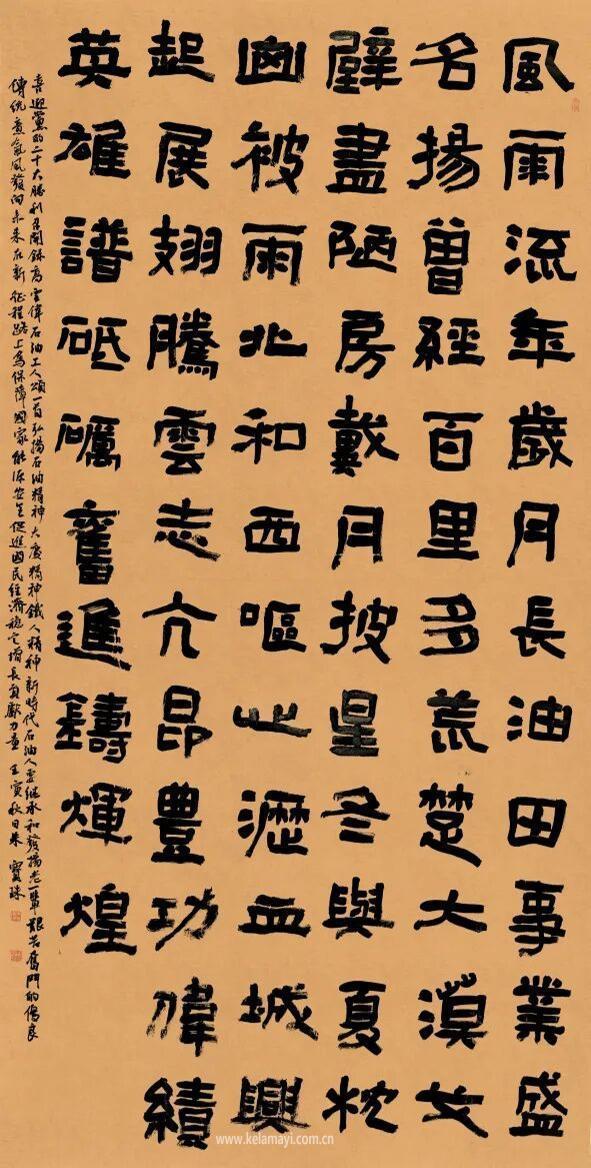 風雨流年歲月長油田事業盛
名揚曾經百里多荒楚大漠戈
壁盡陋房戴月披星冬與夏枕
被雨北和西嘔心瀝血城興
起展翅騰雲志亢昂豐功偉績
英雄譜砥礪奮進鑄輝煌
喜迎黨的二十大勝利召開偉石油工人頌一首弘揚石油精神大慶精神鐵人精神新時代石油人要繼承和發揚老一輩艱苦奮鬥的優良
傳統意氣風發向未來在新征程路上為保障國家能源安全促進國民經濟穩定增長貢獻力量 壬寅秋日朱寶珠
www.kelamayi.com.cn